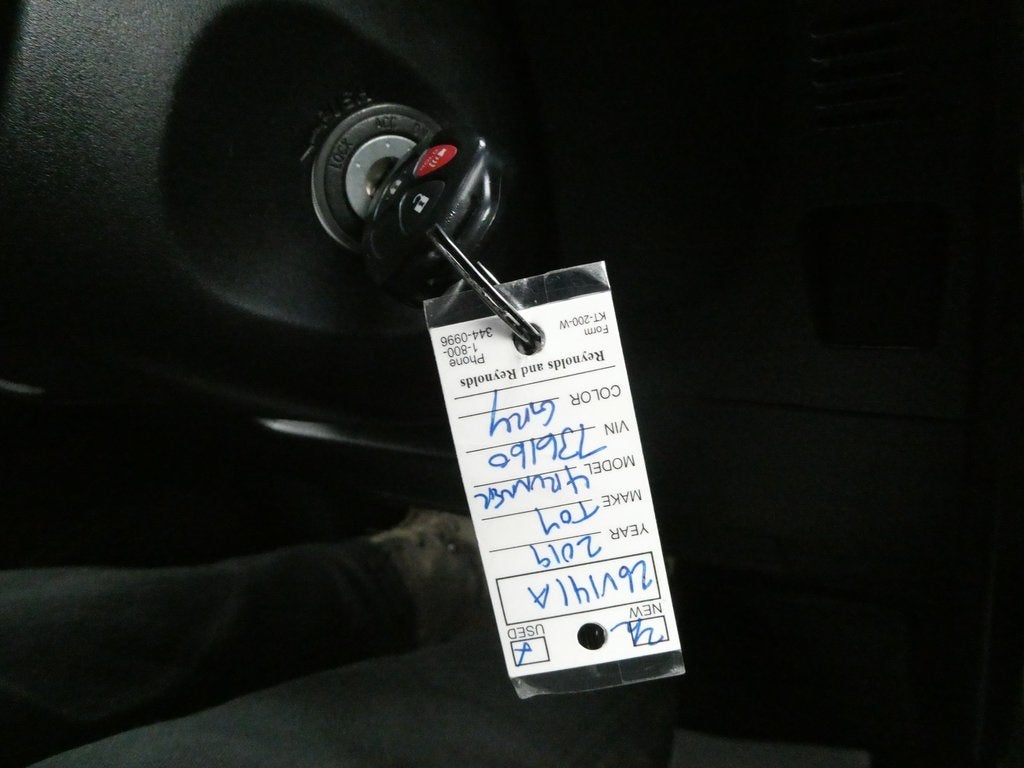 LOCK ACC
NEW USED
26V141A
YEAR 2019
MAKE TOY
MODEL 4RUNNER
VIN 736160
COLOR GRY
Reynolds and Reynolds
Form
KT-200-W
Phone
1-800-
344-0996